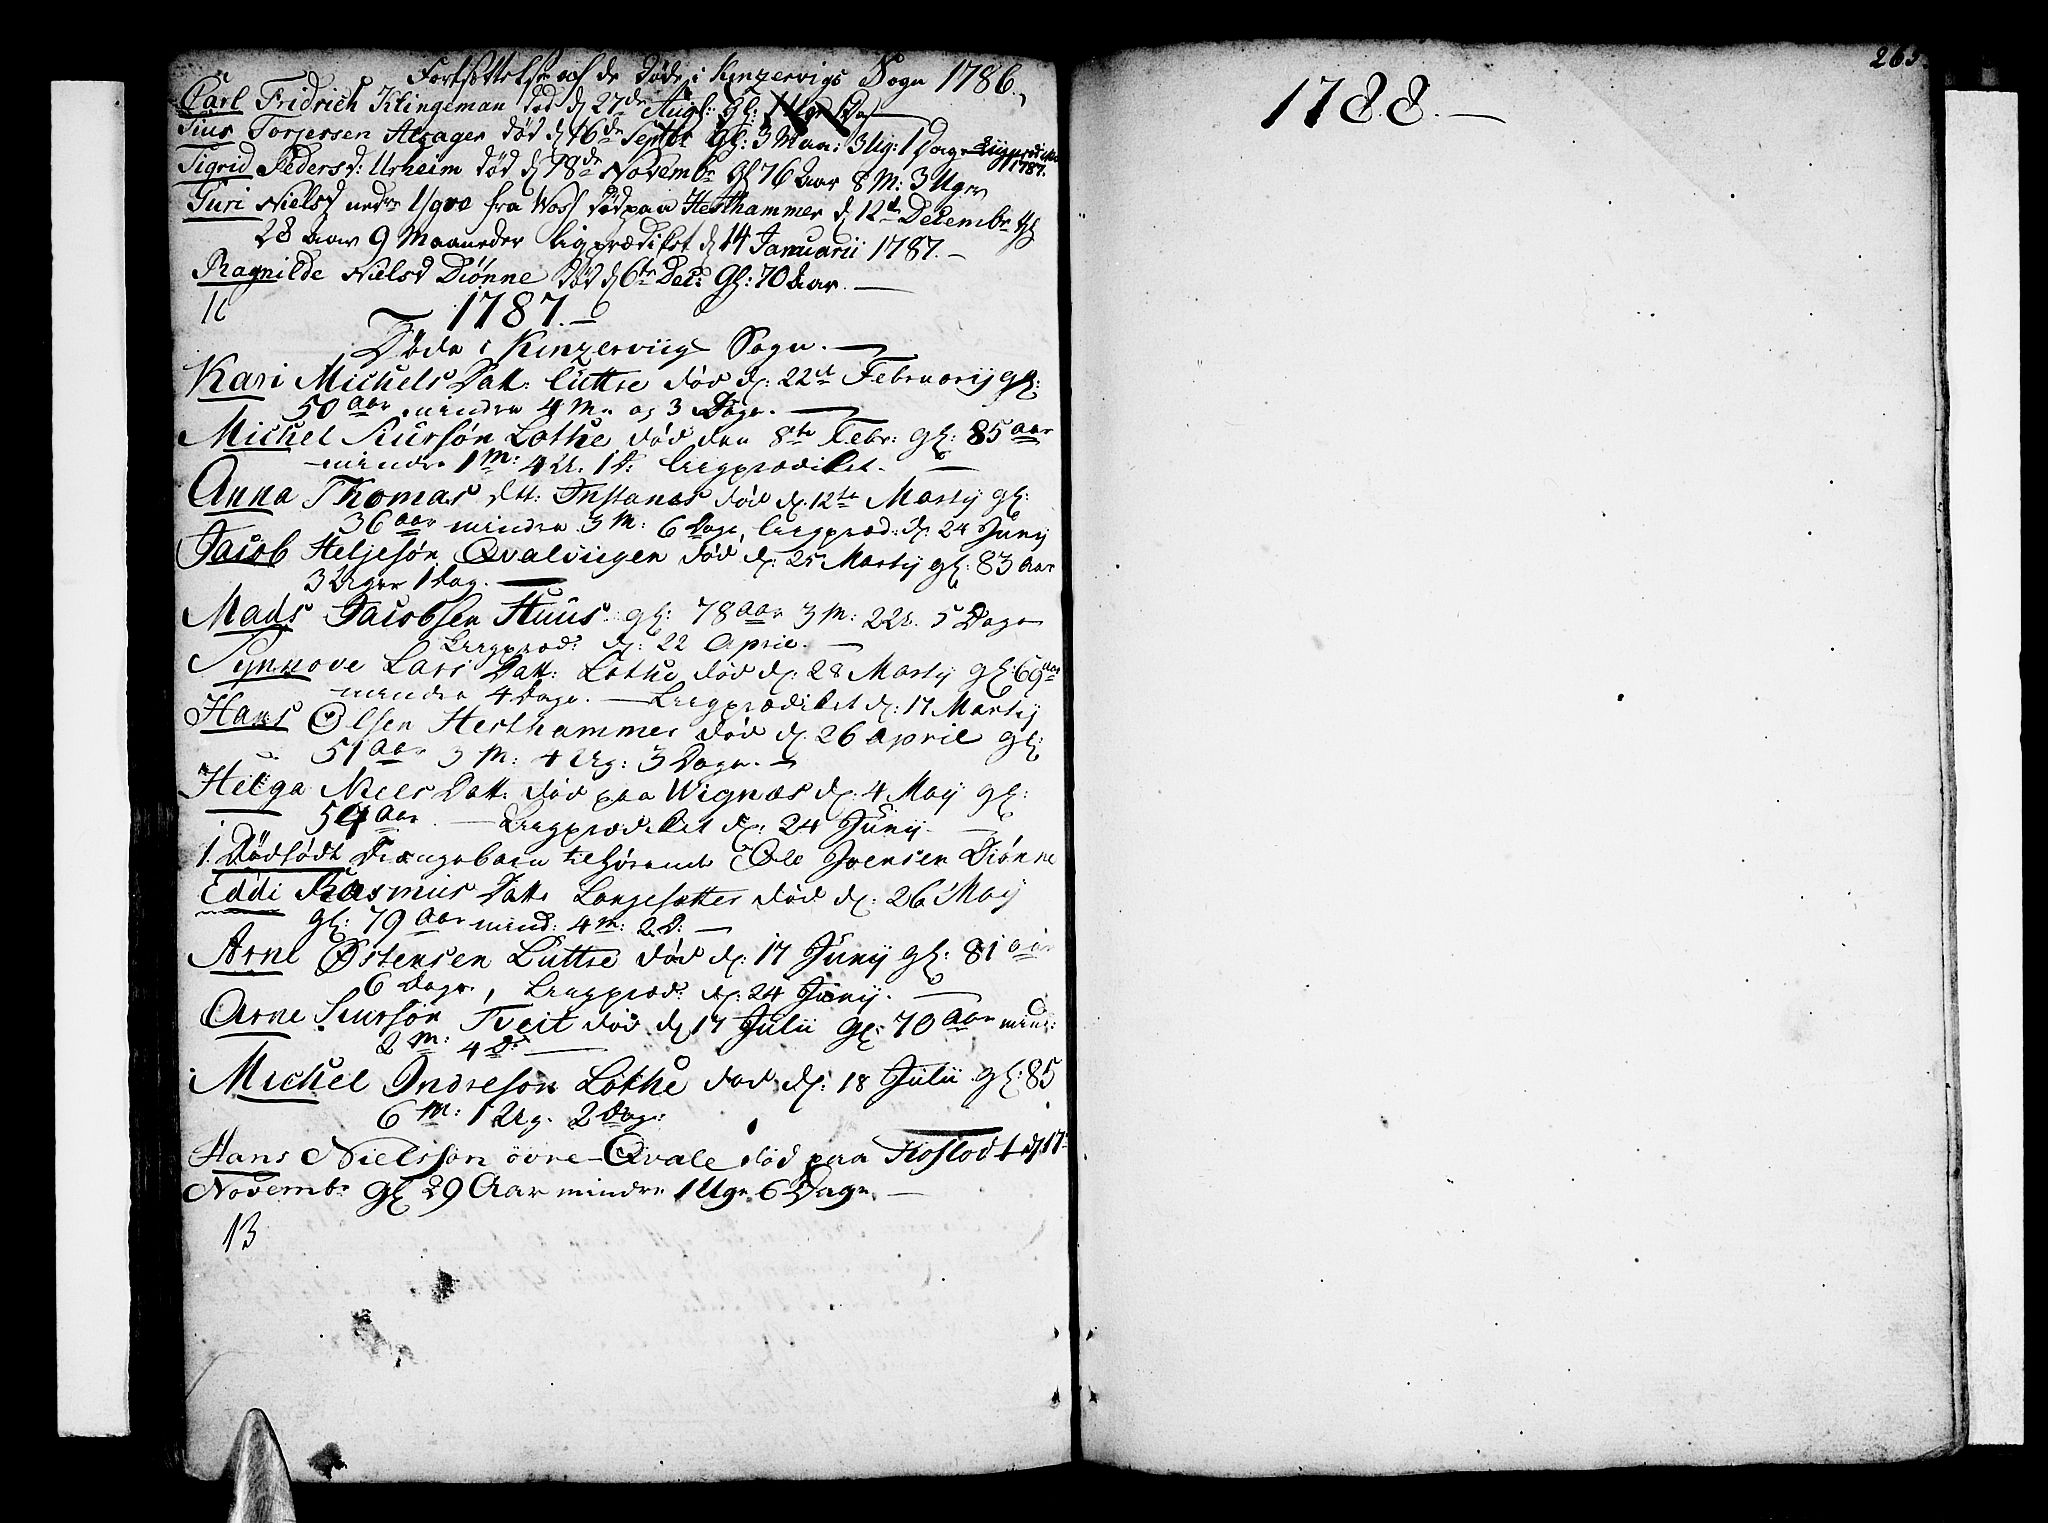 Fortsættelse af de Døde i Kinzervigs Sogn 1786.
Carl Fridrich Klingeman død d 27de Aug: gl:
Siur Torjersen Alsager død d 16de Septbr gl: 3 Maan: 3 Ug: 1 Dag
1787.
Sigrid Pedersd: Urheim død d 18de Novembr gl 76 Aar 8 M: 3 Uger
Turi Nielsd nedre fra Woss død paa Hesthammer d 12te Decembr gl
28 aar 9 Maaneder Ligprædiket d 14 Januarii 1787. –
Ragnilde Nielsd Diønne død d 6te Dec: gl: 70 Aar. –
1787. –
Døde i Kinzerviigs Sogn. –
Kari Michels Datt: Luttre død d: 22de Februarij gl:
50 aar mindre 4 M. og 3 Dage. –
Michel Siursøn Lothe død den 8te Febr: gl: 85 aar
mindre 1 M: 4 U. 1 D: Liigprædiket. –
Anna Thomas dtt: Instanes død d. 12te Martij gl:
36 aar mindre 3 M: 6 Dage, Liigpræd: d. 24 Junij
Jacob Heljesøn Qvalviigen død d: 25 Martij gl: 83 aar
3 Uger 1 Dag. –
Mads Jacobsen Huus gl: 78 aar 3 M: 2 U. 5 Dage
Liigpræd: d: 22 April. –
Synnove Lars Datt: Lothe død d: 28 Martij gl: 69 aar
mindre 4 Dage. – Liigprædiket d: 17 Martij
Hans Olsen Hesthammer død d. 26 April gl:
51 aar 3 M: 4 Ug: 3 Dage. –
Helga Niels Datt: død paa Wignæs d: 4 Maij gl:
54 aar. – Liigprædiket d: 24 Junij. –
1. Dødfødt Drængebarn tilhørende Ole Joensen Diønne
Eddi Rasmus Datt: Langesætter død d: 26 Maij
gl: 79 aar mind: 4 M: 2 D: –
Arne Østensen Luttre død d: 17 Junij gl: 81 aar
6 Dage, Liigpræd: d: 24 Junij. –
Arne Siursøn Tveit død d 17 Julii gl: 70 aar mind:
2 M: 4 D: –
Michel Indresøn Lothe død d: 18 Julii gl: 85
6 M: 1 Ug. 2 Dage:
Hans Nielssøn øvre Qvale død paa d 17:
Novembr gl 29 Aar mindre 1 Uge 6 Dage. –
13
265
1788. –